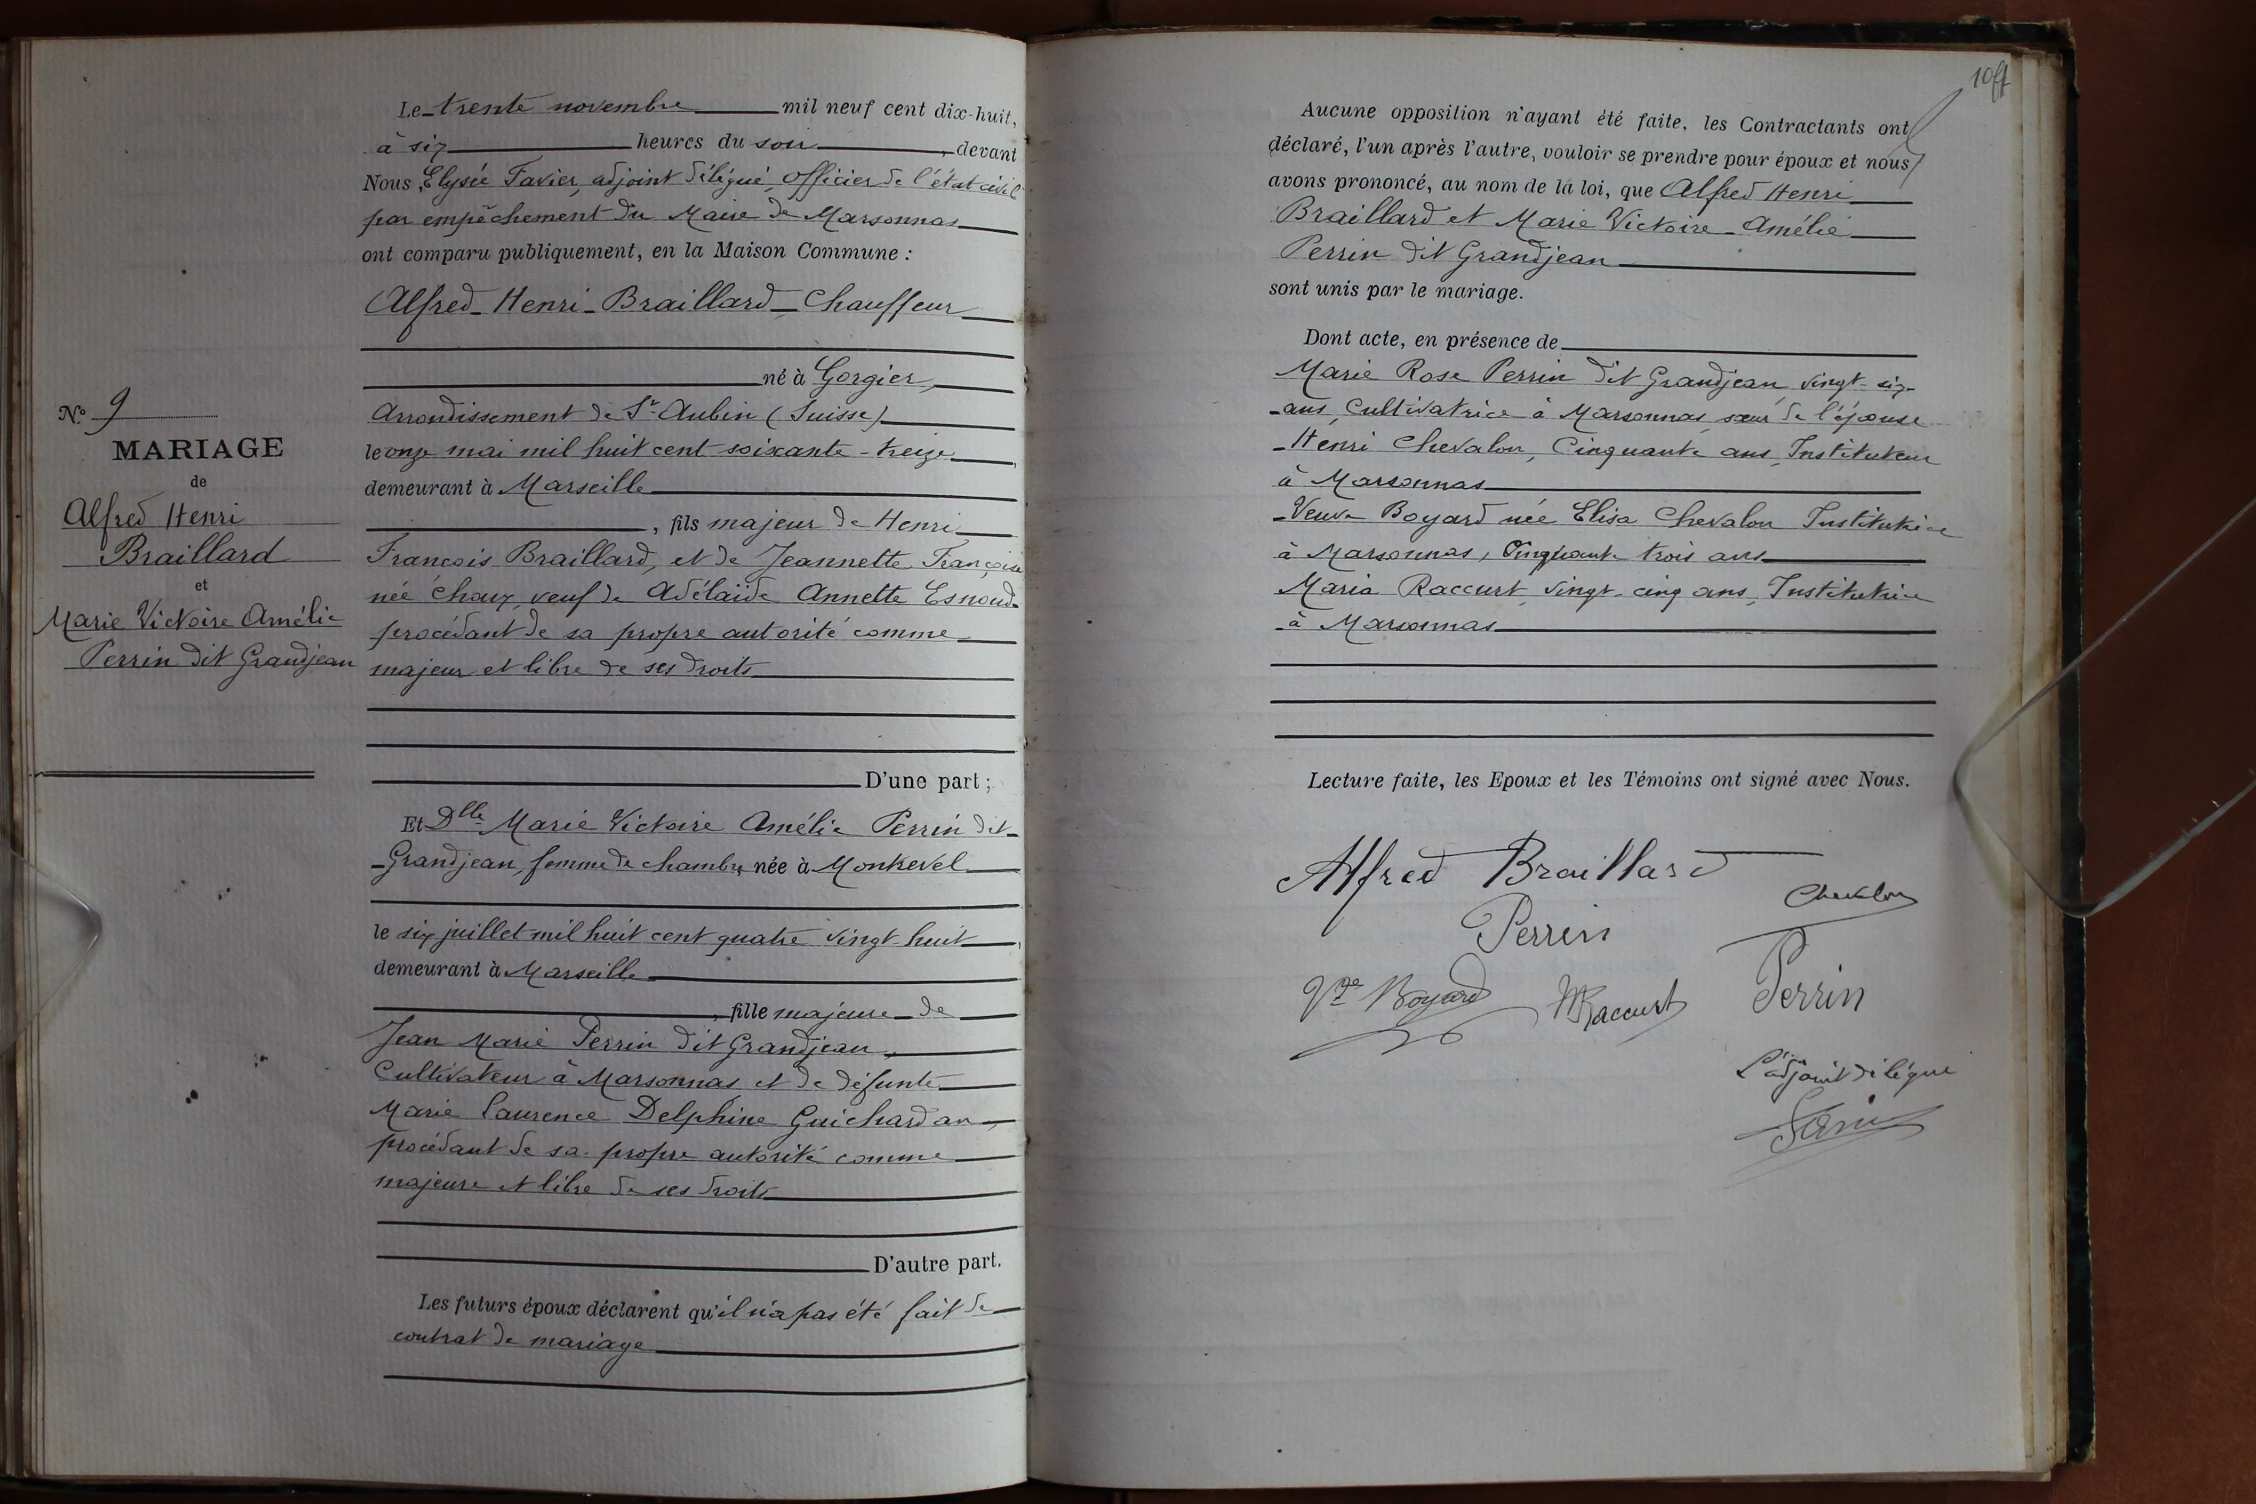 Le trente novembre mil neuf cent dix-huit,
à six heures du soir, devant
Nous, Elysée Favier, adjoint délégué, officier de l'état civil
par empêchement du Maire de Marsonnas
ont comparu publiquement, en la Maison Commune :
Alfred Henri Braillard Chauffeur
né à Gorgier,
Arrondissement de St Aubin (Suisse)
le onze mai mil huit cent soixante-treize,
demeurant à Marseille
, fils majeur de Henri
François Braillard, et de Jeannette Françoise
née Choux, veuf de Adélaïde Annette Esnoud
procédant de sa propre autorité comme
majeur et libre de ses droits
D'une part ;
Nº 9
MARIAGE
de
Alfred Henri
Braillard
et
Marie Victoire Amélie
Perrin dit Grandjean
Et Dlle Marie Victoire Amélie Perrin dit
Grandjean, femme de chambre née à Montrevel
le six juillet mil huit cent quatre vingt huit,
demeurant à Marseille
, fille majeure de
Jean Marie Perrin dit Grandjean,
Cultivateur à Marsonnas et de défunte
Marie Laurence Delphine Guichardan,
procédant de sa propre autorité comme
majeure et libre de ses droits
D'autre part.
Les futurs époux déclarent qu'il n'a pas été fait de
contrat de mariage
10ff
Aucune opposition n'ayant été faite, les Contractants ont
déclaré, l'un après l'autre, vouloir se prendre pour époux et nous
avons prononcé, au nom de la loi, que Alfred Henri
Braillard et Marie Victoire Amélie
Perrin dit Grandjean
sont unis par le mariage.
Dont acte, en présence de
Marie Rose Perrin dit Grandjean, vingt-six
ans, Cultivatrice à Marsonnas sœur de l'épouse
Henri Chevalon, Cinquante ans, Instituteur
à Marsonnas
Veuve Boyard née Elisa Chevalon Institutrice
à Marsonnas, Cinquante trois ans
Maria Raccurt, vingt-cinq ans, Institutrice
à Marsonnas
Lecture faite, les Epoux et les Témoins ont signé avec Nous.
Alfred Braillard
Chevalon
Perrin
Vve Boyard
MRaccurt
Perrin
L'adjoint délégué